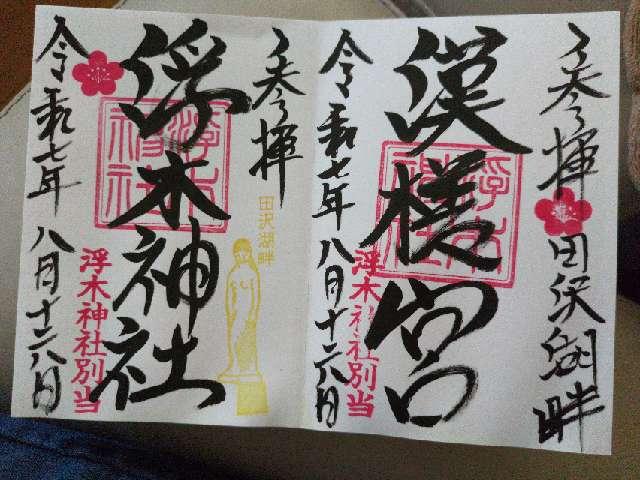 奉拝 田沢湖畔
漢槎宮
浮木神社
浮木神社別当
令和七年八月十六日
奉拝
田沢湖畔
浮木神社
浮木神社
浮木神社別当
令和七年八月十六日